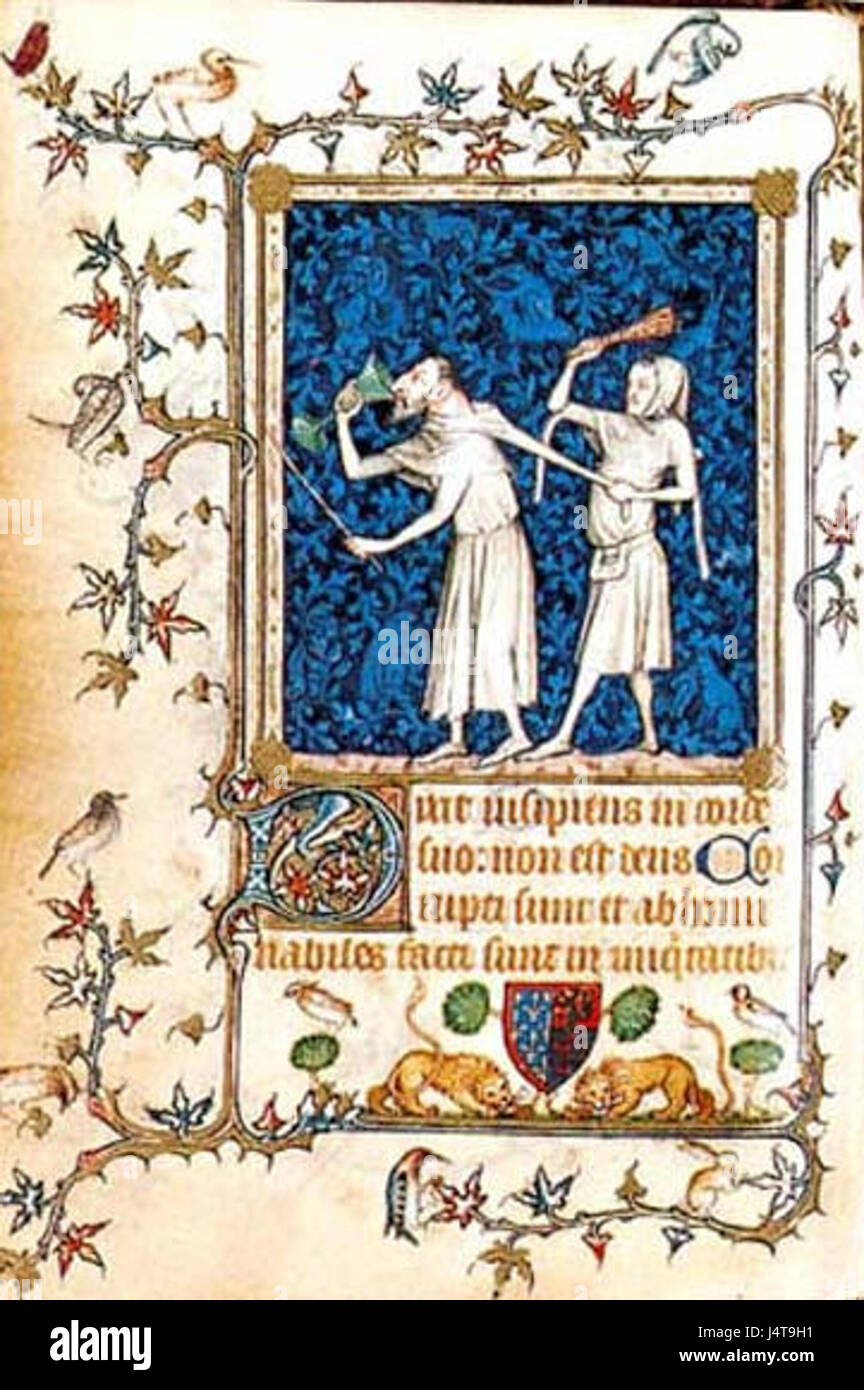 Dixit insipiens in corde
suo: non est deus Cor
rupti sunt et abhomi
nabiles facti sunt in iniq̃tatib
a
alamy
alamy stock photo
Image ID: J4T9H1
www.alamy.com